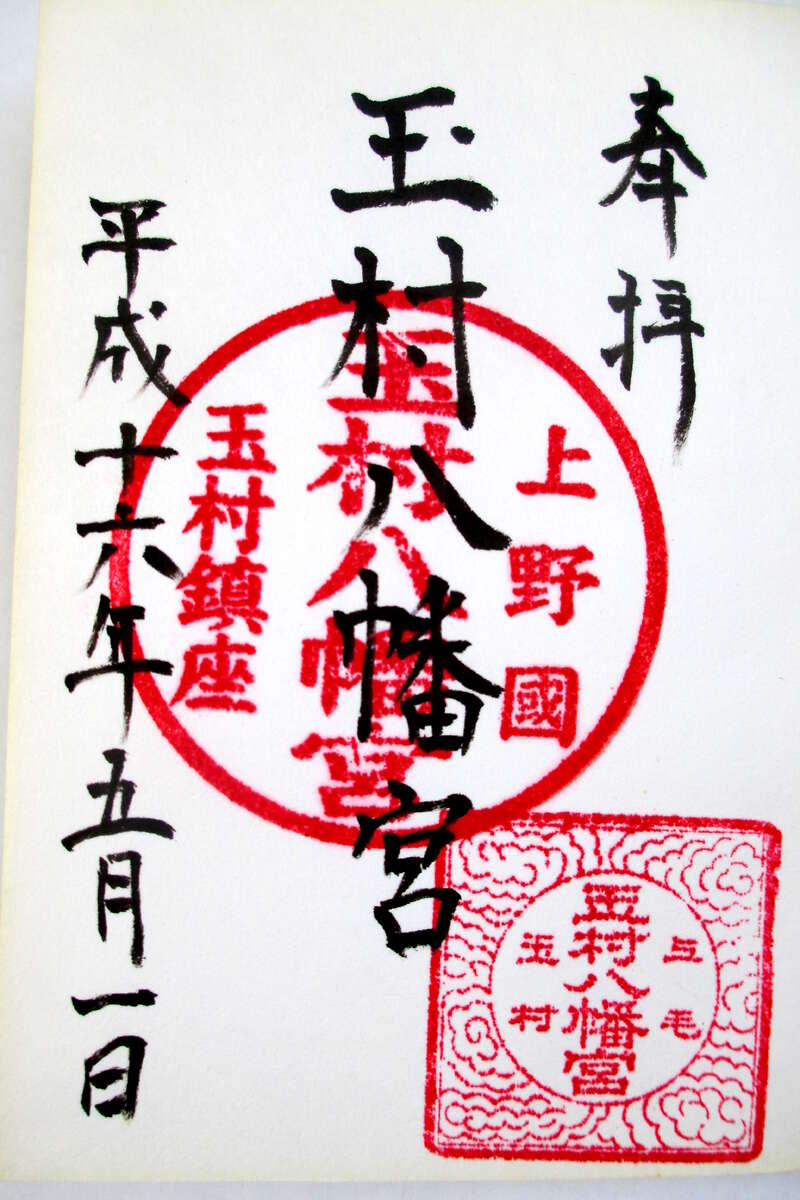 奉拝
上野國
玉村八幡宮
玉村八幡宮
玉村鎮座
平成十六年五月一日
上毛
玉村八幡宮
玉村